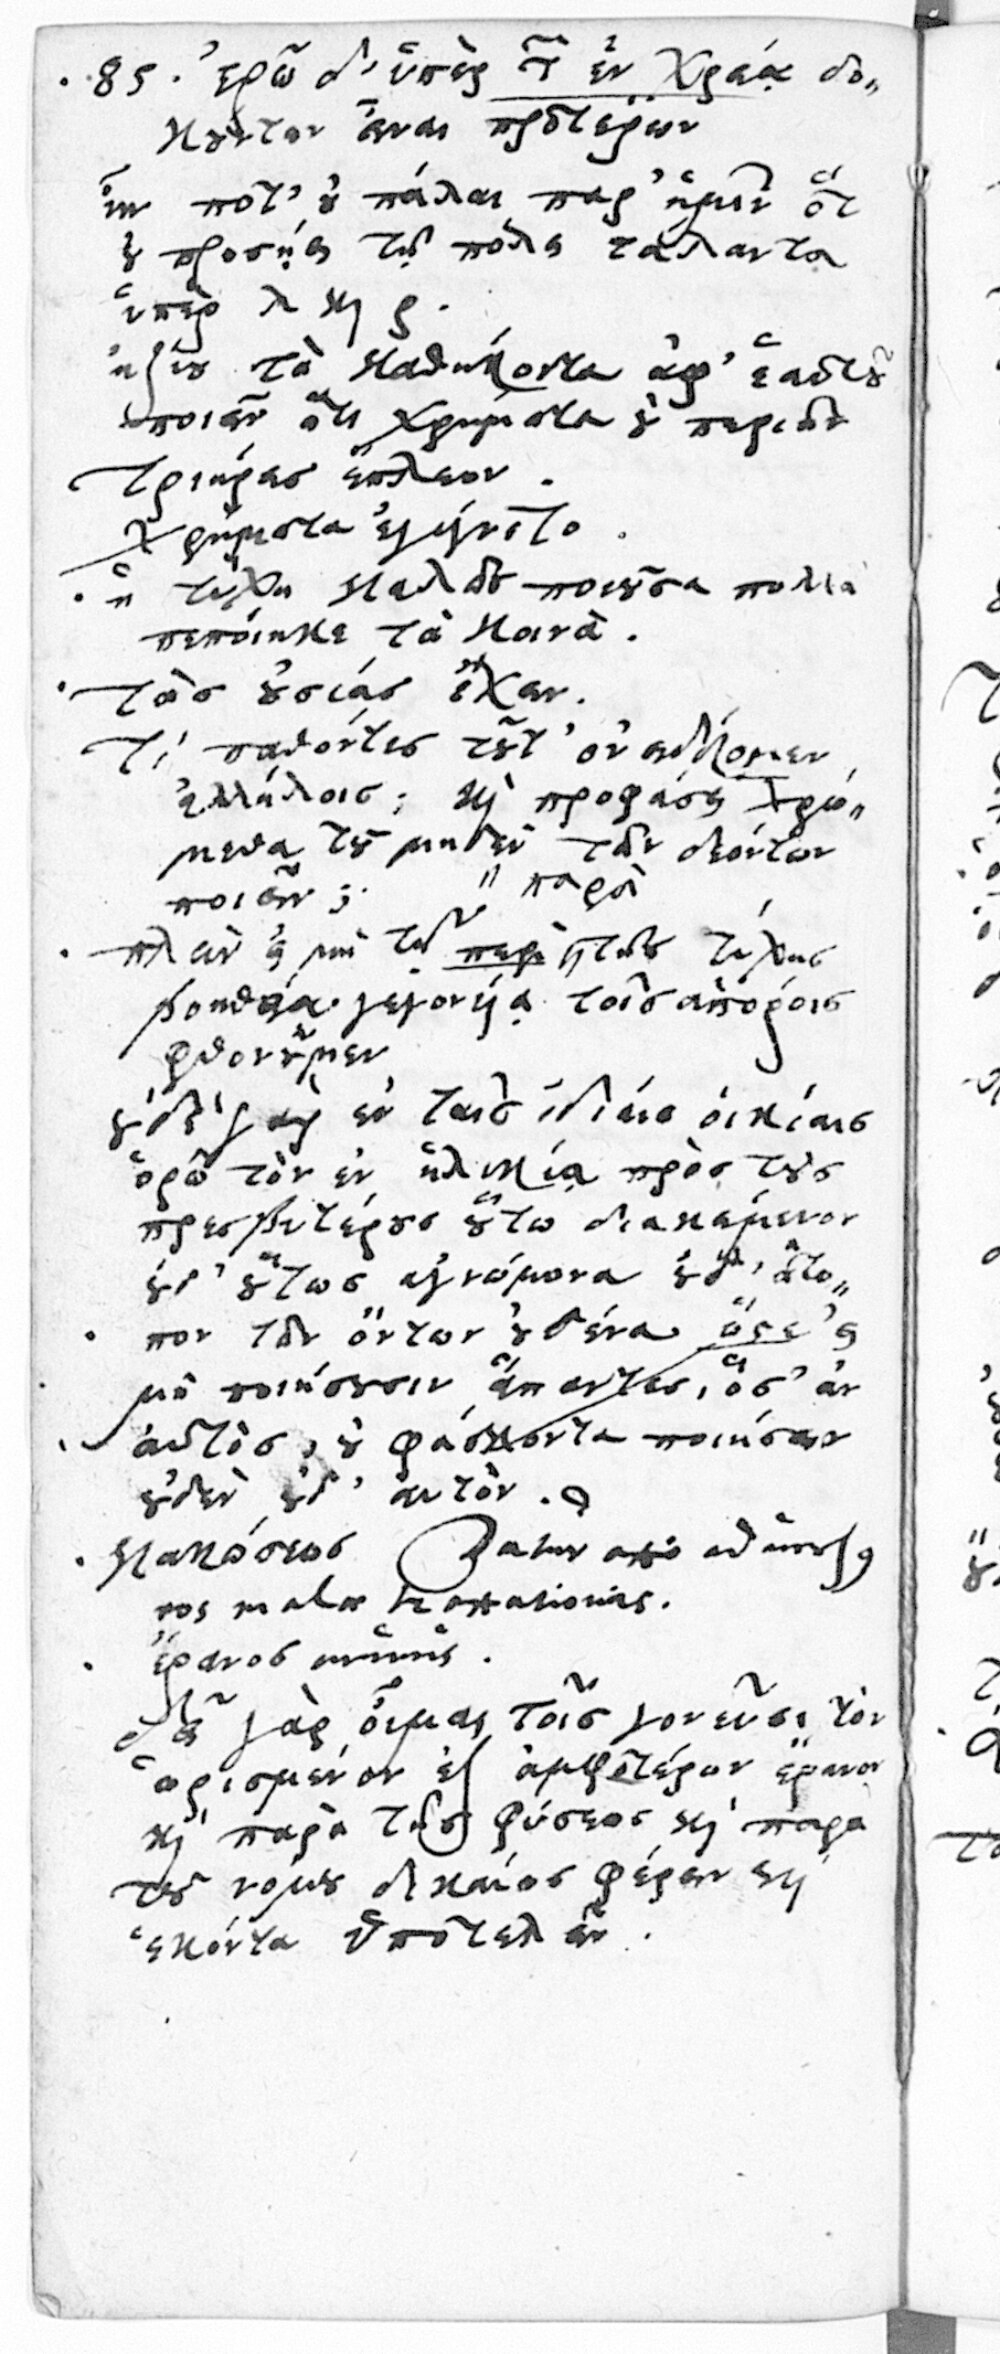 . 85 . ἐρῶ δ' ὑπὲρ τ̃ ἐν χρείᾳ δο„
κούντων εἶναι προτέρων
ἦν ποτ' οὐ πάλαι παρ' ἡμῖν ὅτ
οὐ προσῄει τῇ πόλει τάλαντα
ὑπὲρ λ καὶ ρ .
ἠξίου τὰ καθήκοντα ἀφ' ἑαυτοῦ
ποιεῖν ὅτι χρήματα οὐ περιῆν
τριήρεις ἔπλεον .
χρήματα ἐγίγνετο .
. ἡ τύχη καλῶς ποιοῦσα πολλὰ
πεποίηκε τὰ κοινὰ .
. τὰς οὐσίας ἔχειν .
τί παθόντες τοῦτ' ὀνειδίζομεν
ἀλλήλοις ; καὶ προφάσει χρώ„
μεθα τοῦ μηδὲν τῶν δεόντων
ποιεῖν ; „ παρὰ
. πλὴν εἰ μὴ τῇ περὶ τῆς τύχης
βοηθείᾳ γεγονυίᾳ τοῖς ἀπόροις
φθονοῦμεν
οὐδὲ γὰρ ἐν ταῖς ἰδίαις οἰκίαις
ὁρῶ τὸν ἐν ἡλικίᾳ πρὸς τοὺς
πρεσβυτέρους οὕτω διακείμενον
οὐδ' οὕτως ἀγνώμονα οὐδ' ἄτο„
. πον τῶν ὄντων οὐδένα ὅστε εἰ
μὴ ποιήσουσιν ἅπαντες, ὅσ' ἂν
. αὐτὸς, οὐ φάσκοντα ποιήσειν
οὐδὲν οὐδ' αὐτὸν .
. κακώσεως
. ἔρανος
δεῖ γὰρ οἶμαι τοῖς γονεῦσι τὸν
ὡρισμένον ἐξ ἀμφοτέρων ἔρανον
καὶ παρὰ τῆς φύσεως καὶ παρὰ
τοῦ νόμου δικαίως φέρειν καὶ
ἑκόντα ὑποτελεῖν .